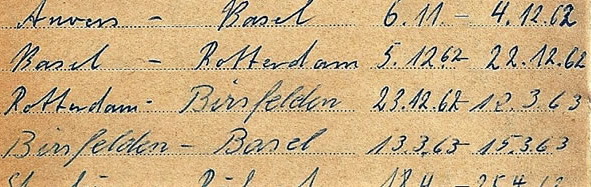 Anvers - Basel 6.11. - 4.12.62
Basel - Rotterdam 5.12.62 - 22.12.62
Rotterdam - Birsfelden 23.12.62 - 12.3.63
Birsfelden - Basel 13.3.63 - 15.3.63
18.4. - 25.4.62